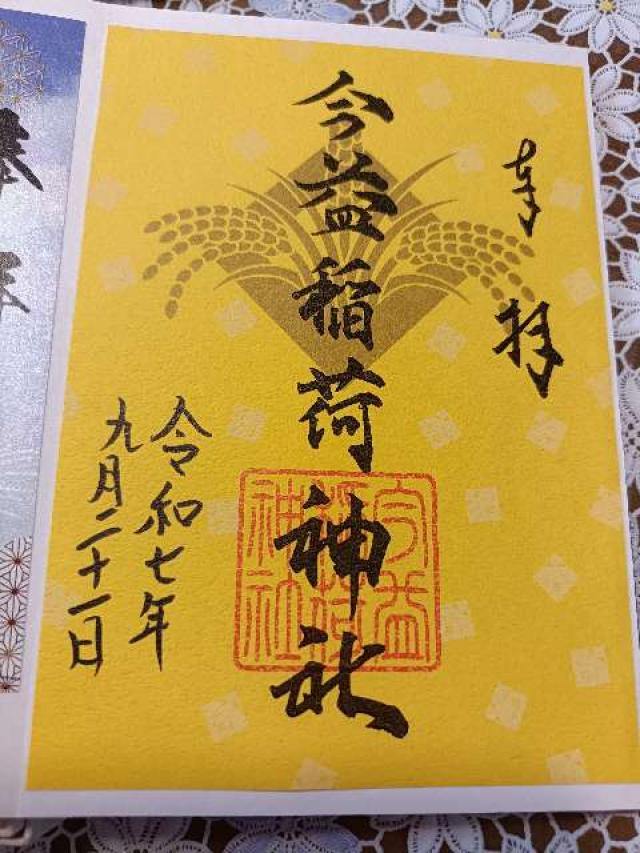 奉拝
今益稲荷神社
今益稲荷神社
令和七年
九月二十一日
奉拝